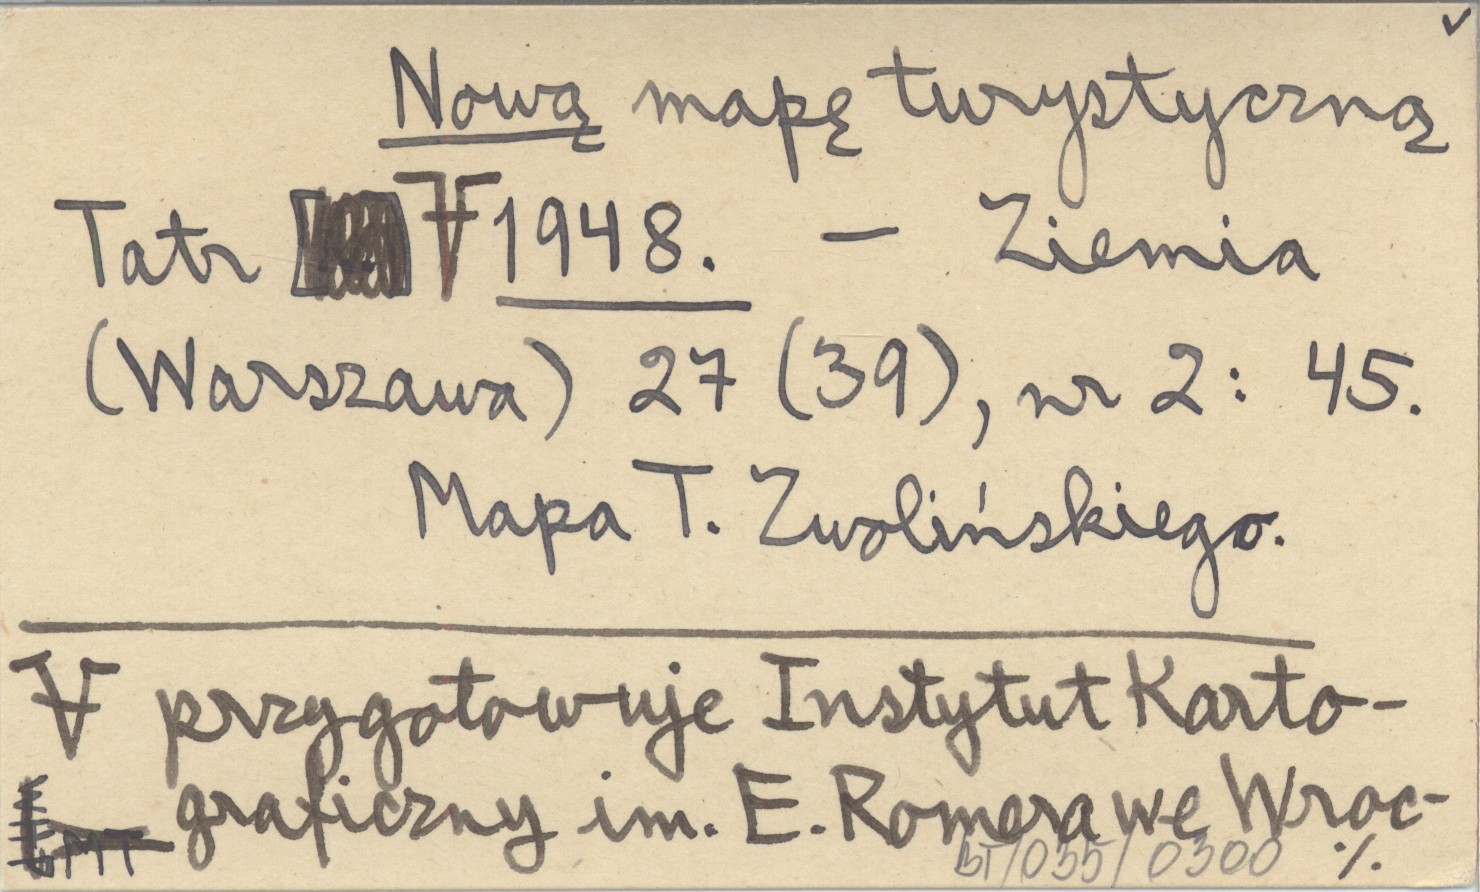 ✓
Nową mapę turystyczną
Tatr [...] 1948. – Ziemia
(Warszawa) 27 (39), nr 2: 45.
Mapa T. Zwolińskiego.
przygotowuje Instytut Karto-
graficzny im. E. Romera we Wroc-
BT/035/0300 ·/.